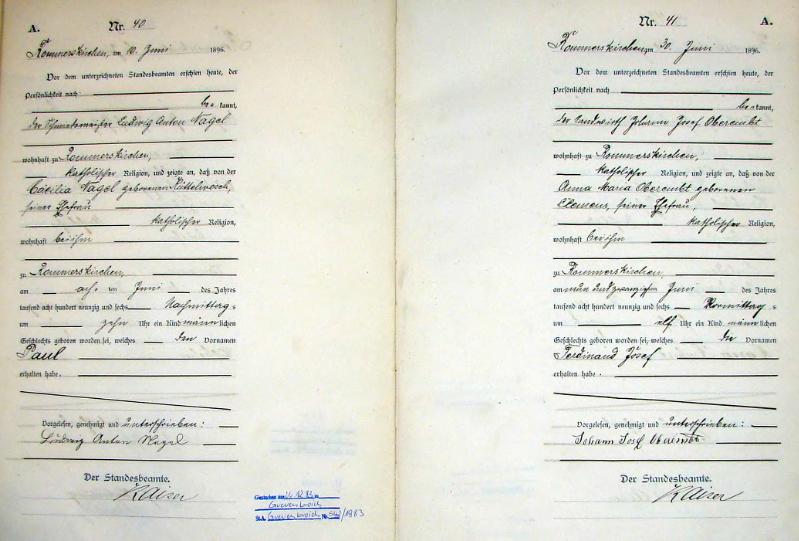 A.
Nr. 40
Rommerskirchen, am 10. Juni 1896.
Vor dem unterzeichneten Standesbeamten erschien heute, der
Persönlichkeit nach
be kannt,
der Schmiedemeister Ludwig Anton Nagel
wohnhaft zu Rommerskirchen,
katholischer Religion, und zeigte an, daß von der
Cäcilia Nagel geborenen
seiner Ehefrau
katholischer Religion,
wohnhaft bei ihm
zu Rommerskirchen,
am acht ten Juni des Jahres
tausend acht hundert neunzig und sechs Nachmittags
um zehn Uhr ein Kind männlichen
Geschlechts geboren worden sei, welches den Vornamen
Paul
erhalten habe.
Vorgelesen, genehmigt und unterschrieben:
Ludwig Anton Nagel
Der Standesbeamte.
Kaiser
Grevenbroich
St.A. Grevenbroich Nr. /1983
Nr. 41
A.
Rommerskirchen, am 30. Juni 1896.
Vor dem unterzeichneten Standesbeamten erschien heute, der
Persönlichkeit nach
be kannt,
der Landwirth Johann Josef Oberembt
wohnhaft zu Rommerskirchen,
katholischer Religion, und zeigte an, daß von der
Anna Maria Oberembt geborenen
Clemens, seiner Ehefrau,
katholischer Religion,
wohnhaft bei ihm
zu Rommerskirchen,
am neun und zwanzigsten Juni des Jahres
tausend acht hundert neunzig und sechs Vormittags
um elf Uhr ein Kind männlichen
Geschlechts geboren worden sei, welches die Vornamen
Ferdinand Josef
erhalten habe.
Vorgelesen, genehmigt und unterschrieben:
Johann Josef Oberembt
Der Standesbeamte.
Kaiser